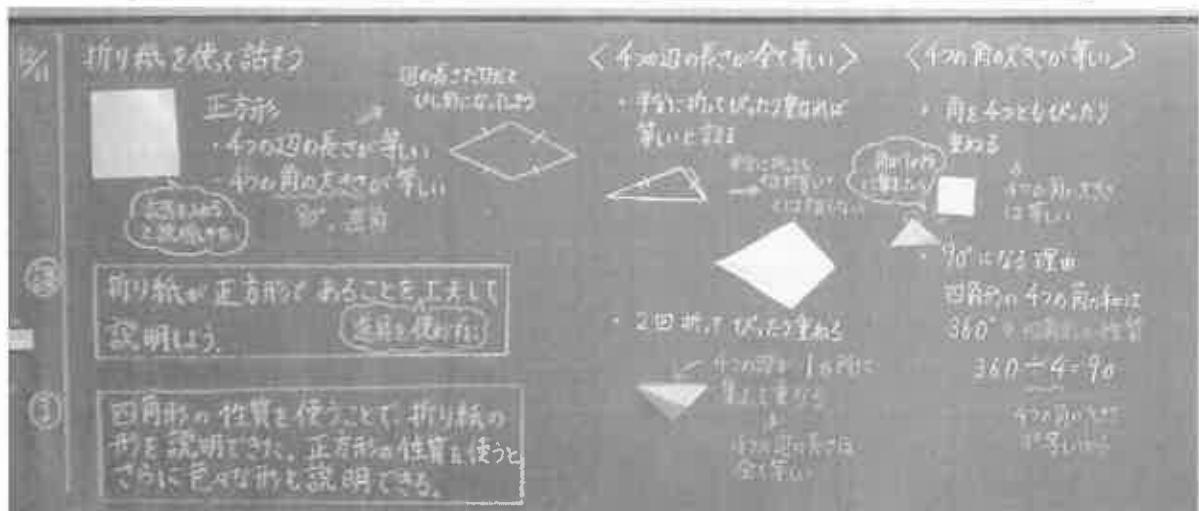 折り紙を使って話そう
正方形
・4つの辺の長さが等しい
・4つの角の大きさが等しい
90°、直角
辺の長さだけだと
ひし形になってしまう
折り紙が正方形であることを工夫して
説明しよう。
定規を使わずに
四角形の性質を使うことで、折り紙の
形を説明できた。正方形の性質を使うと
さらに色々な形も説明できる。
<4つの辺の長さが全て等しい>
・半分に折ってぴったり重なれば
等しいと言える
・2回折ってぴったり重ねる
4つの辺が1か所に
4つの辺の長さは
全て等しい
<4つの角の大きさが等しい>
・角を4つともぴったり
重ねる
4つの角の大きさ
は等しい
・90°になる理由
四角形の4つの角の和は
360°
360÷4=90
4つの角の大きさ